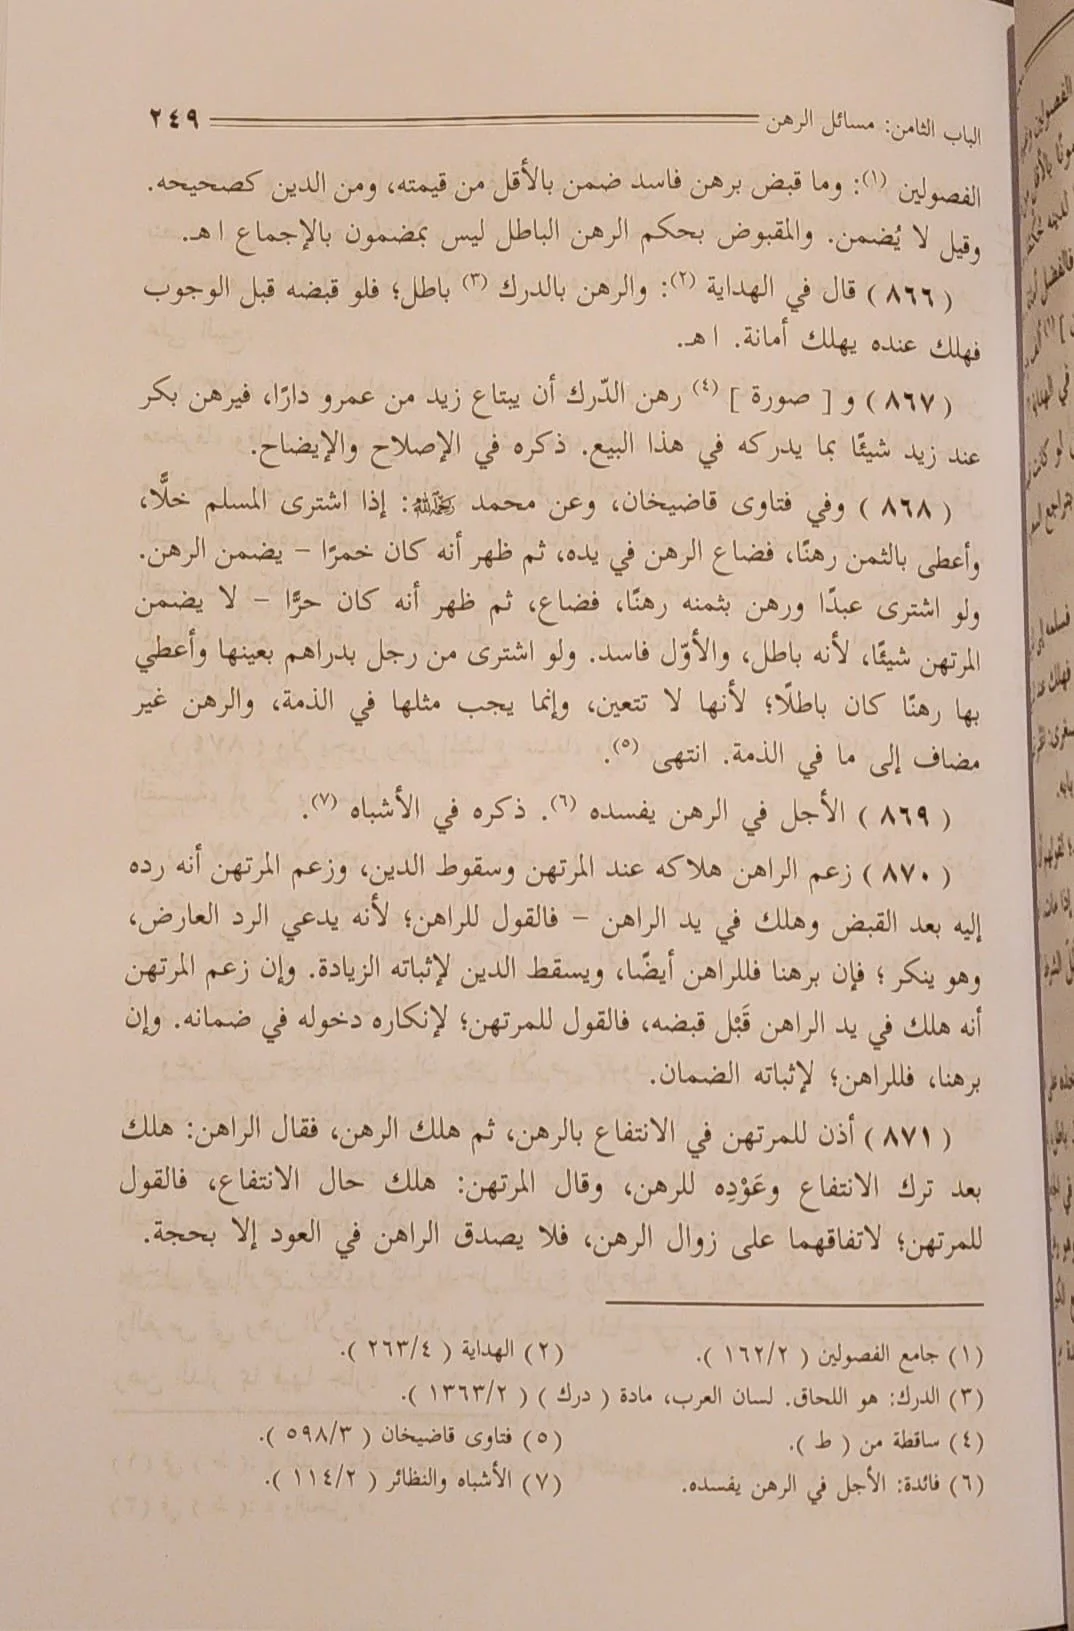 الباب الثامن: مسائل الرهن ٢٤٩
الفصولين (١): وما قبض برهن فاسد ضمن بالأقل من قيمته، ومن الدين كصحيحه.
وقيل لا يُضمن. والمقبوض بحكم الرهن الباطل ليس بمضمون بالإجماع اهـ.
( ٨٦٦ ) قال في الهداية (٢): والرهن بالدرك (٣) باطل؛ فلو قبضه قبل الوجوب
فهلك عنده يهلك أمانة. اهـ.
( ٨٦٧ ) و [ صورة ] (٤) رهن الدّرك أن يبتاع زيد من عمرو دارًا، فيرهن بكر
عند زيد شيئًا بما يدركه في هذا البيع. ذكره في الإصلاح والإيضاح.
( ٨٦٨ ) وفي فتاوى قاضيخان، وعن محمد رحمه الله: إذا اشترى المسلم خلًّا،
وأعطى بالثمن رهنًا، فضاع الرهن في يده، ثم ظهر أنه كان خمرًا – يضمن الرهن.
ولو اشترى عبدًا ورهن بثمنه رهنًا، فضاع، ثم ظهر أنه كان حرًّا – لا يضمن
المرتهن شيئًا، لأنه باطل، والأوّل فاسد. ولو اشترى من رجل بدراهم بعينها وأعطي
بها رهنًا كان باطلًا؛ لأنها لا تتعين، وإنما يجب مثلها في الذمة، والرهن غير
مضاف إلى ما في الذمة. انتهى (٥).
( ٨٦٩ ) الأجل في الرهن يفسده (٦). ذكره في الأشباه (٧).
( ٨٧٠ ) زعم الراهن هلاكه عند المرتهن وسقوط الدين، وزعم المرتهن أنه رده
إليه بعد القبض وهلك في يد الراهن – فالقول للراهن؛ لأنه يدعي الرد العارض،
وهو ينكر ؛ فإن برهنا فللراهن أيضًا، ويسقط الدين لإثباته الزيادة. وإن زعم المرتهن
أنه هلك في يد الراهن قَبْل قبضه، فالقول للمرتهن؛ لإنكاره دخوله في ضمانه. وإن
برهنا، فللراهن؛ لإثباته الضمان.
( ٨٧١ ) أذن للمرتهن في الانتفاع بالرهن، ثم هلك الرهن، فقال الراهن: هلك
بعد ترك الانتفاع وعَوْدِه للرهن، وقال المرتهن: هلك حال الانتفاع، فالقول
للمرتهن؛ لاتفاقهما على زوال الرهن، فلا يصدق الراهن في العود إلا بحجة.
(١) جامع الفصولين ( ١٦٢/٢ ). (٢) الهداية ( ٢٦٣/٤ ).
(٣) الدرك: هو اللحاق. لسان العرب، مادة ( درك ) ( ١٣٦٣/٢ ).
(٤) ساقطة من ( ط ). (٥) فتاوى قاضيخان ( ٥٩٨/٣ ).
(٦) فائدة: الأجل في الرهن يفسده. (٧) الأشباه والنظائر ( ١١٤/٢ ).